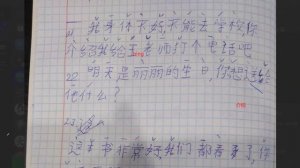 21 我身体不好,不能去学校,你
介绍我给王老师打个电话吧
22 明天是丽丽的生日,你想送给
他什么?
介绍
23
这本书非常好,我们都看了,你